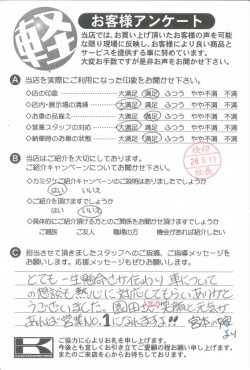 軽
お客様アンケート
当店では、お買い上げ頂いたお客様の声を可能
な限り現場に反映し、お客様により良い商品と
サービスを提供する事に努めています。
大変お手数ですが是非お声をお聞かせ下さい。
A 当店を実際にご利用になった印象をお聞かせ下さい。
◇店の印象 大満足 満足 ふつう やや不満 不満
◇店内・展示場の清掃 大満足 満足 ふつう やや不満 不満
◇お車の品揃え 大満足 満足 ふつう やや不満 不満
◇営業スタッフの対応 大満足 満足 ふつう やや不満 不満
◇納車時のお車の状態 大満足 満足 ふつう やや不満 不満
B 当店はご紹介を大切にしております。
ご紹介キャンペーンについてお聞かせ下さい。
検印
28.9.13
社長
◇カミタケご紹介キャンペーンのご説明はありましたでしょうか
はい いいえ
◇ご紹介を頂けますでしょうか
はい いいえ
◇具体的にご紹介頂ける方とのご関係をお聞かせ頂けますでしょうか
ご親族 ご友人 職場の方 機会があれば紹介したい
C 担当させて頂きましたスタッフへのご指摘、ご指導メッセージを
お願いします。応援メッセージもぜひお願いします。
とても一生懸命さが伝わり車について
の想談も熱心に対応してもらいありがと
うございました。園田さんの笑顔と元気が
あれば営業No.1になれますよ!!
より
K
ご協力に心よりお礼を申し上げます。
今後とも宜しくお引き立てご愛顧の程お願い申し上げます。
またのご来店を心からお待ちしております。